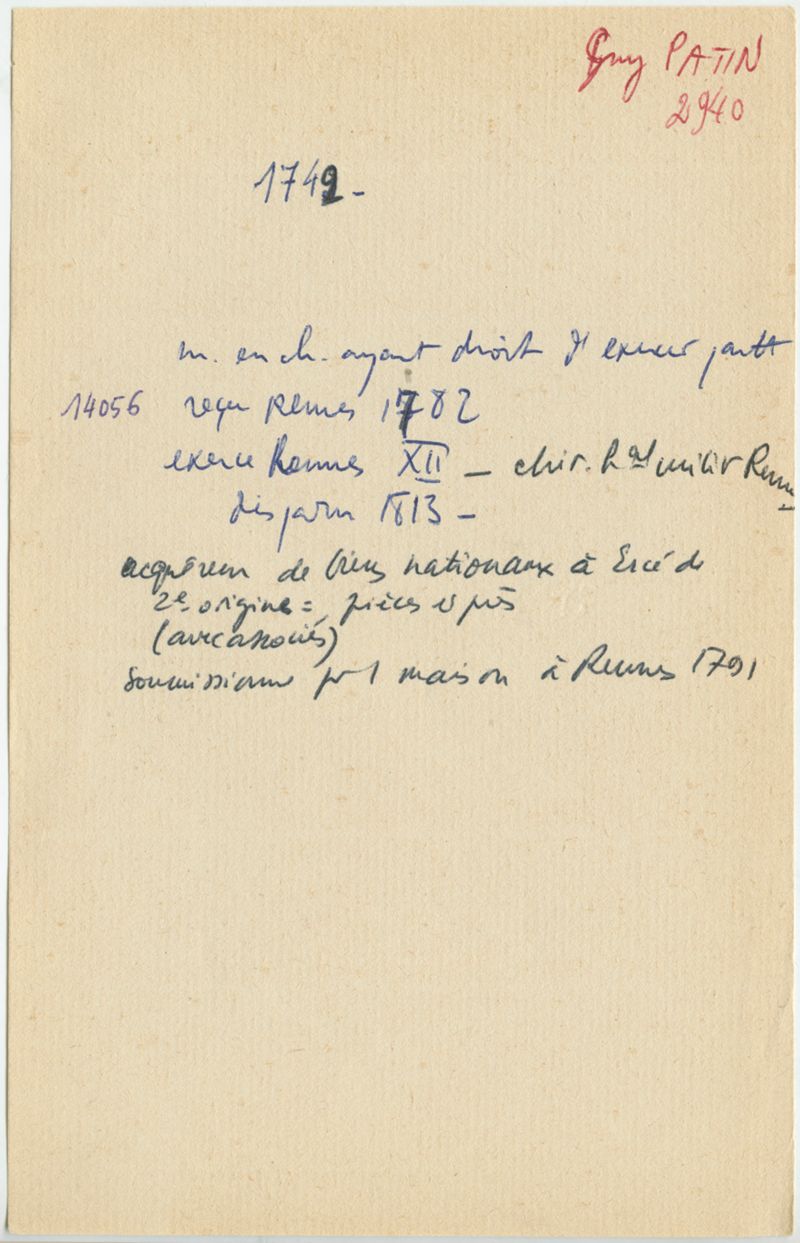 Guy PATIN
2940
1742 -
m. en ch. ayant droit d'exercer partt
14056 reçu Rennes 1782
exerce Rennes XII - chir. hal milir Rennes
disparu 1813 -
acquéreur de biens nationaux à Ercé de
2e origine = pièces et prés
(avec associés)
soumissionne pr 1 maison à Rennes 1791